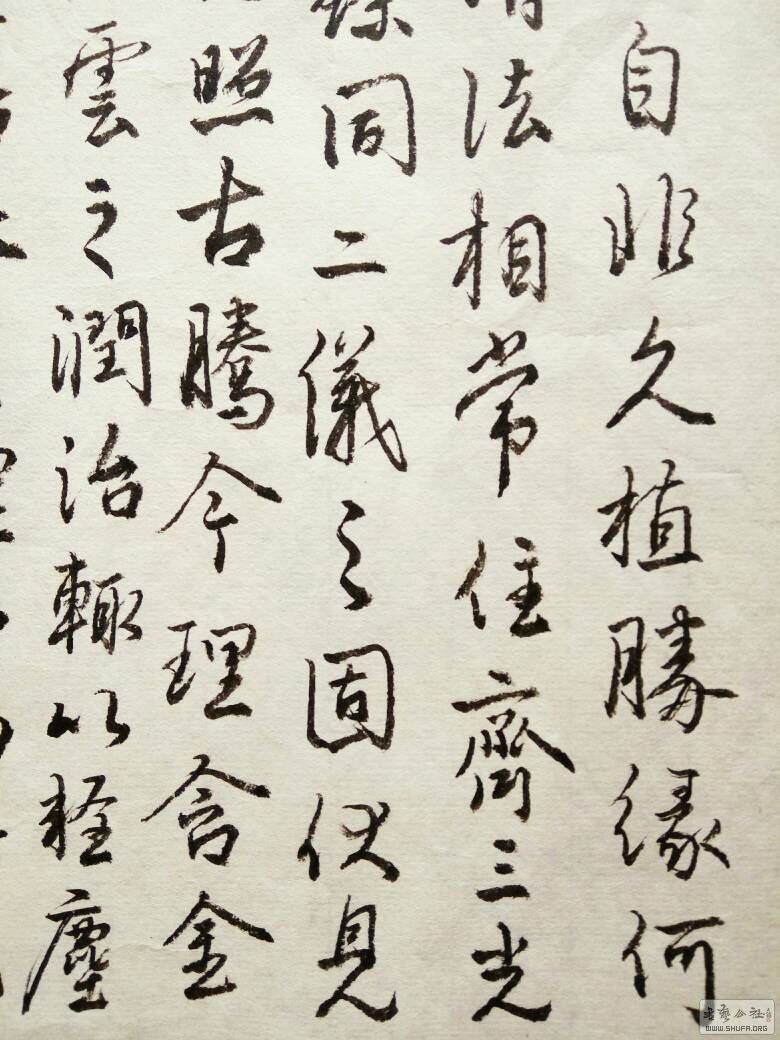 自非久植勝緣何
法相常住齊三光
同二儀之固伏見
照古騰今理含金
雲之潤治輒以輕塵
书艺公社
WWW.SHUFA.ORG